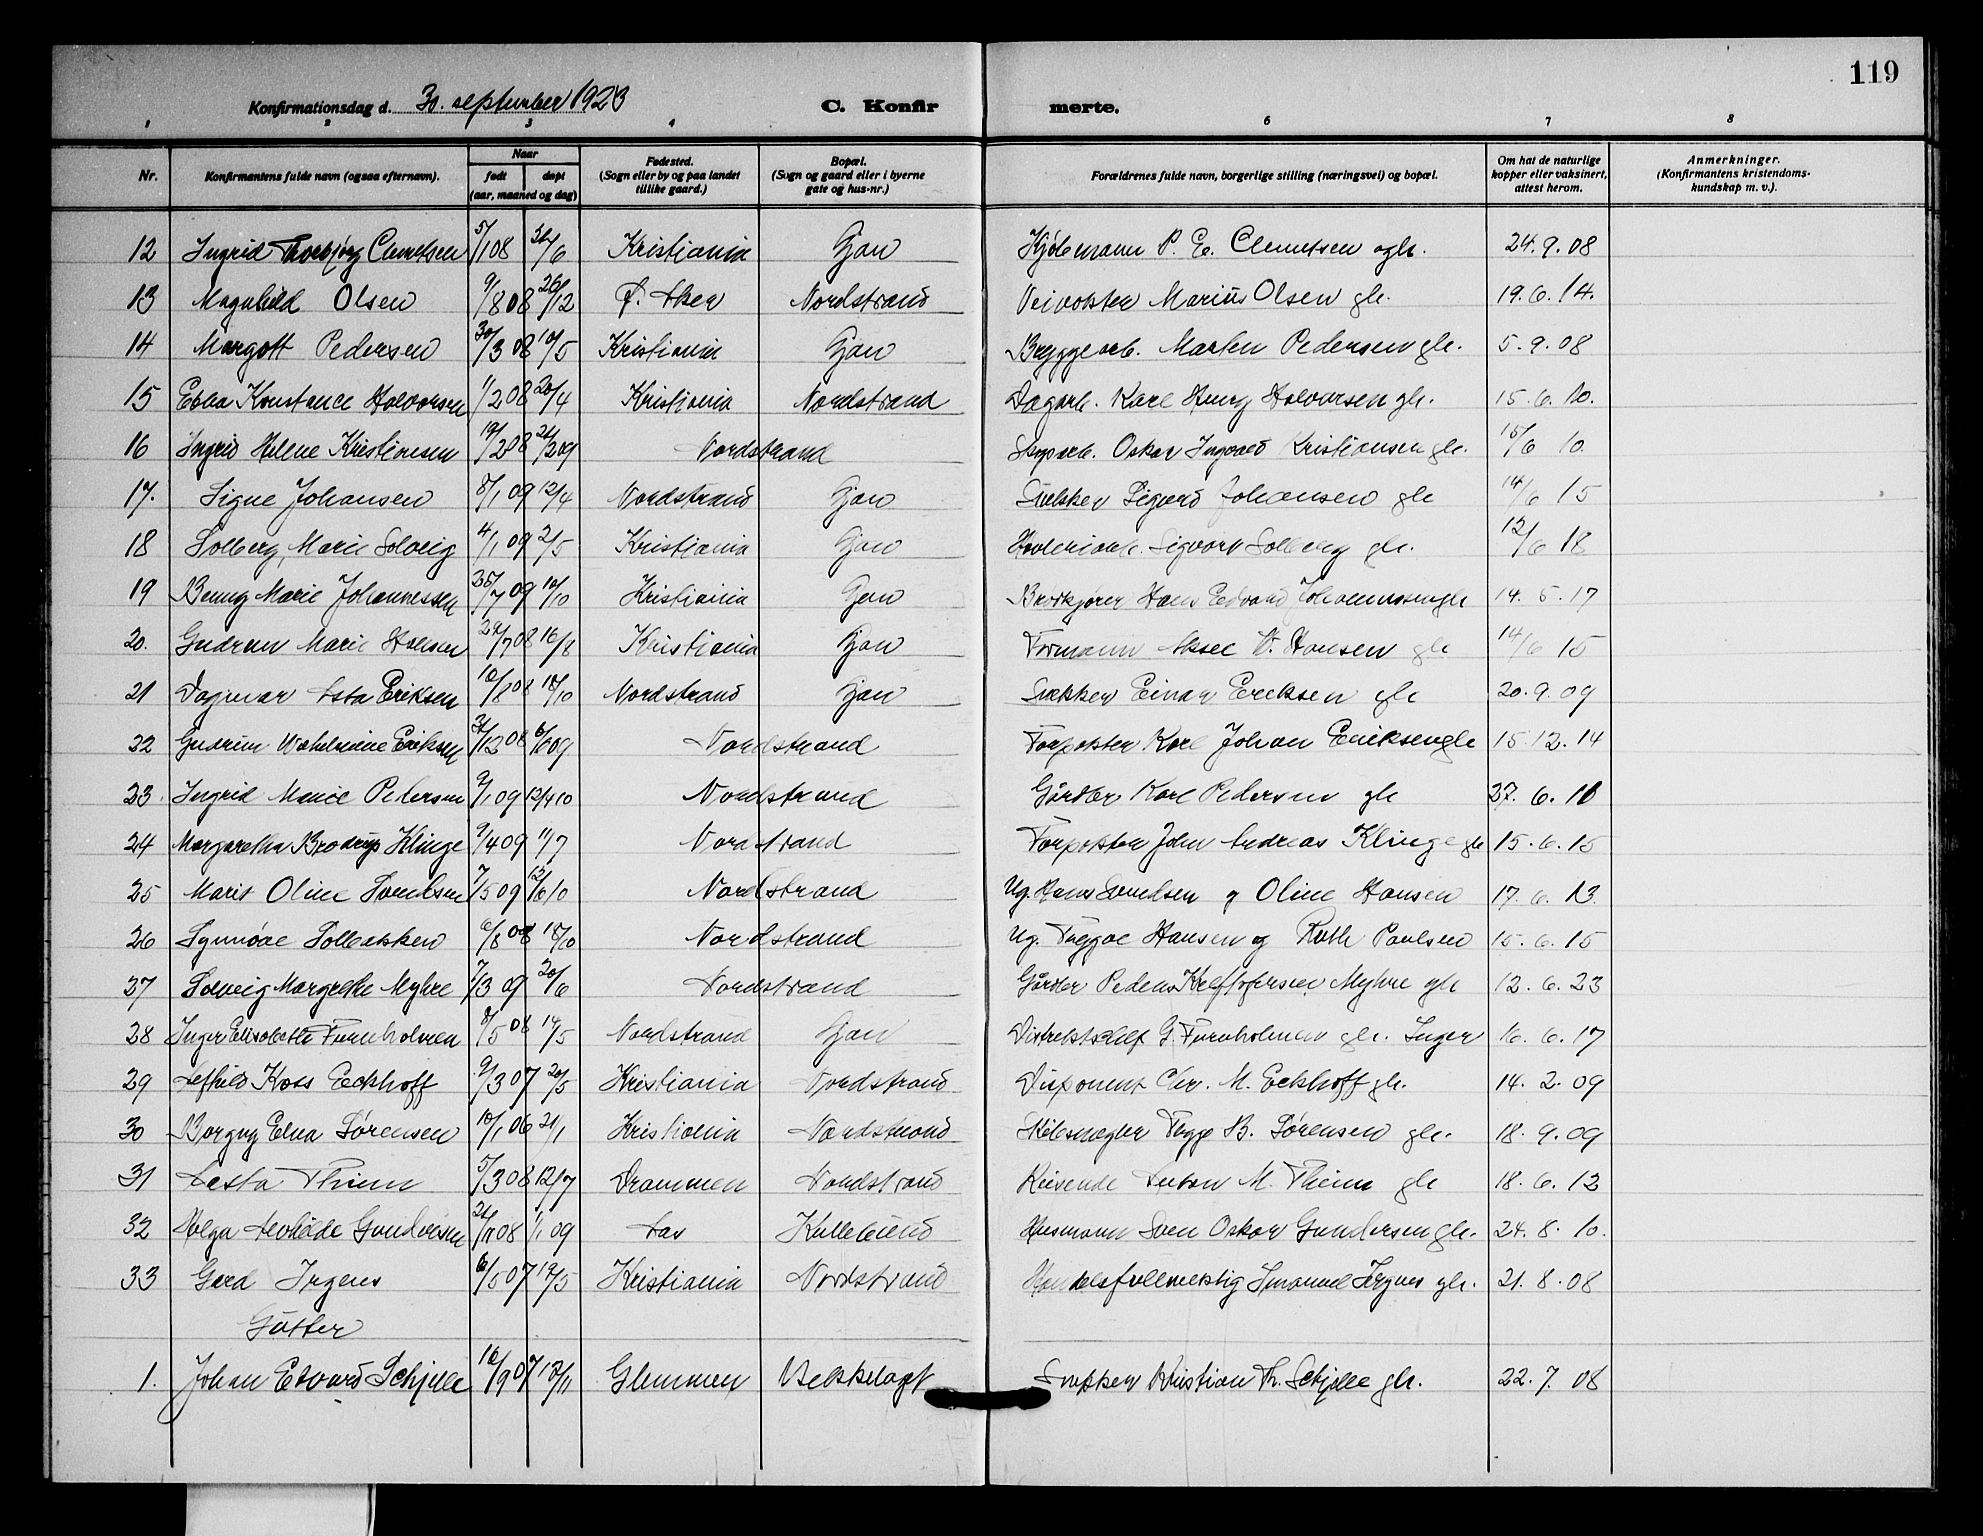 119
Konfirmationsdag d. 30. september 1923 C. Konfir merte.
1 2 3 4 6 7 8
Nr. Konfirmantens fulde navn (ogsaa efternavn). Naar født døpt (aar, maaned og dag) Fødested. (Sogn eller by og paa landet tillike gaard.) Bopæl. (Sogn og gaard eller i byerne gate og hus-nr.) Forældrenes fulde navn, borgerlige stilling (næringsvei) og bopæl. Om hat de naturlige kopper eller vaksinert, attest herom. Anmerkninger. (Konfirmantens kristendoms-kundskap m. v.).
12 Ingrid Thorbjørg Clemetsen 5/1 08 /6 Kristiania Gjan Kjøbmann P. E. Clemetsen gh. 24.9.08
13 Magnhild Olsen 9/8 08 26/12 Ø. Aker Nordstrand Veivokter Marius Olsen gh. 19.6.14.
14 Margott Pedersen 30/3 08 10/5 Kristiania Gjan Bryggearb. Marten Pedersen gh. 5.9.08
15 Ebba Konstance Halvorsen 1/2 08 20/4 Kristiania Nordstrand Dagarb. Karl Henry Halvorsen gh. 15.6.10.
16 Ingrid Helene Kristiansen 19/2 08 21/2 09 Nordstrand Oskar Ingvald Kristiansen gh. 15/6 10.
17. Signe Johansen 8/1 09 12/4 Nordstrand Gjan Snekker Sigurd Johansen gh 14/6 15
18 Solberg, Marie Solveig 4/1 09 2/5 Kristiania Gjan Sigvart Solberg gh. 12/6 18
19 Benny Marie Johannessen 25/7 09 10/10 Kristiania Gjan Brødkjører Hans Edvard Johannessen gh 14.5.17
20. Gudrun Marie Hansen 29/7 08 16/8 Kristiania Gjan Formann Aksel V. Hansen gh 14/6 15
21 Dagmar Asta Eriksen 10/8 08 18/10 Nordstrand Gjan Snekker Einar Eriksen gh 20.9.09
22 Gudrun Wilhelmine Eriksen 31/12 08 6/6 09 Nordstrand Karl Johan Eriksen gh 15.12.14
23. Ingrid Marie Pedersen 9/1 09 12/4 10 Nordstrand Karl Pedersen gh 27.6.10
24 Margaretha Brodrup Klinge 9/4 09 11/7 Nordstrand John Andreas Klinge gh 15.6.15
25 Marit Oline 7/5 09 /6 10 Nordstrand Ug. Hans og Oline Hansen 17.6.13.
26 Synnøve Solbakken 6/8 08 18/10 Nordstrand Ug. Trygve Hansen og Ruth Paulsen 15.6.15
27 Solveig Margrethe Myhre 7/3 09 20/6 Nordstrand Peder Kristofersen Myhre gh 12.6.23
28 Inger Elisabeth Furuholmen 8/5 08 14/5 Nordstrand Gjan G. Furuholmen gh. Inger 16.6.17
29 Alfhild Koss Eckhoff 9/3 07 20/5 Kristiania Nordstrand Disponent Chr. M. Eckhoff gh. 14.2.09
30 Borgny Elna Sørensen 10/1 06 21/1 Kristiania Nordstrand Skibsmegler Trygg B. Sørensen gh. 18.9.09
31 Aasta Thiem 5/3 08 12/7 Drammen Nordstrand Reisende Anton M. Thiem gh 18.6.12
32 Helga Gundersen 21/11 08 1/1 09 Aas Kullebund Husmann Sven Oskar Gundersen gh. 24.8.10.
33 Gerd Irgens 6/5 07 19/5 Kristiania Nordstrand Handelsfullmektig Imanuel Irgens gh. 21.8.08
Gutter
1. Johan Edvard Schjelle 16/9 07 17/11 Glemmen Bekkelaget Snekker Kristian Th. Schjelle gh. 22.7.08